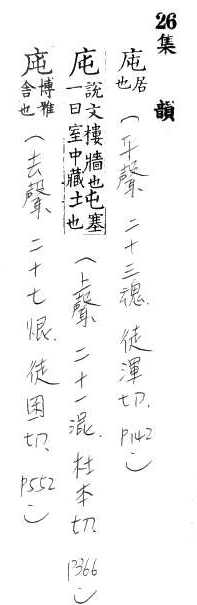 26集韻
庉居也(平聲 二十三魂 徒渾切. P142)
庉說文樓牆也屯塞一曰室中藏土也(上聲 二十一混. 杜本切. P366)
庉博雅舍也(去聲 二十七恨. 徒困切. P552)